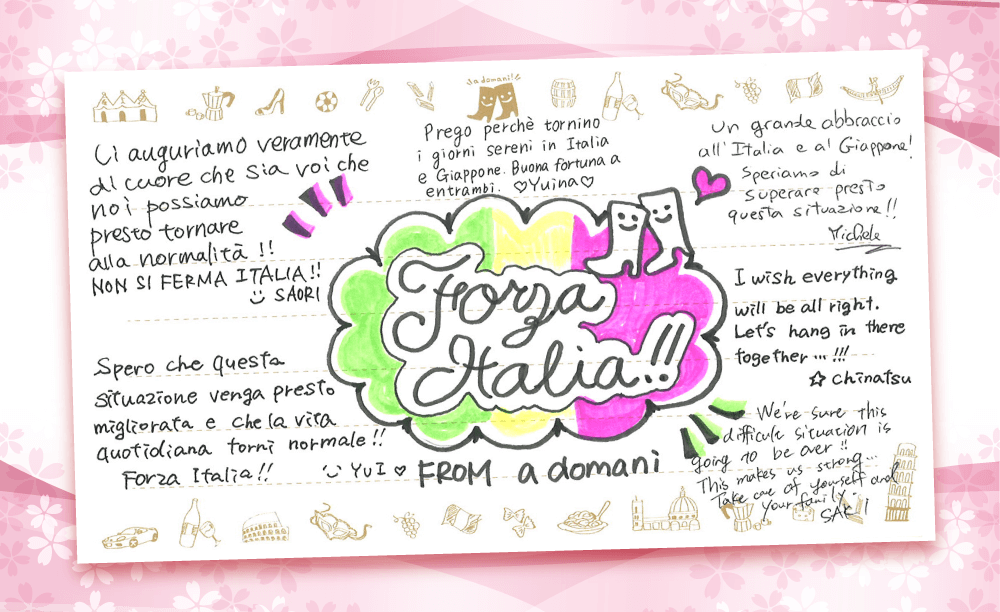 a domani!
Ci auguriamo veramente
di cuore che sia voi che
noi possiamo
presto tornare
alla normalità !!
NON SI FERMA ITALIA!!
SAORI
Prego perchè tornino
i giorni sereni in Italia
e Giappone. Buona fortuna a
entrambi. ♡Yuina♡
Un grande abbraccio
all'Italia e al Giappone!
Speriamo di
superare presto
questa situazione!!
Michele
Forza
Italia!!
FROM a domani
I wish everything
will be all right.
Let's hang in there
together … !!!
☆ chinatsu
Spero che questa
situazione venga presto
migliorata e che la vita
quotidiana torni normale!!
Forza Italia!! YuI ♡
We're sure this
difficult situation is
going to be over !!
This makes us strong...
Take care of yourself and
your family.
SAKI